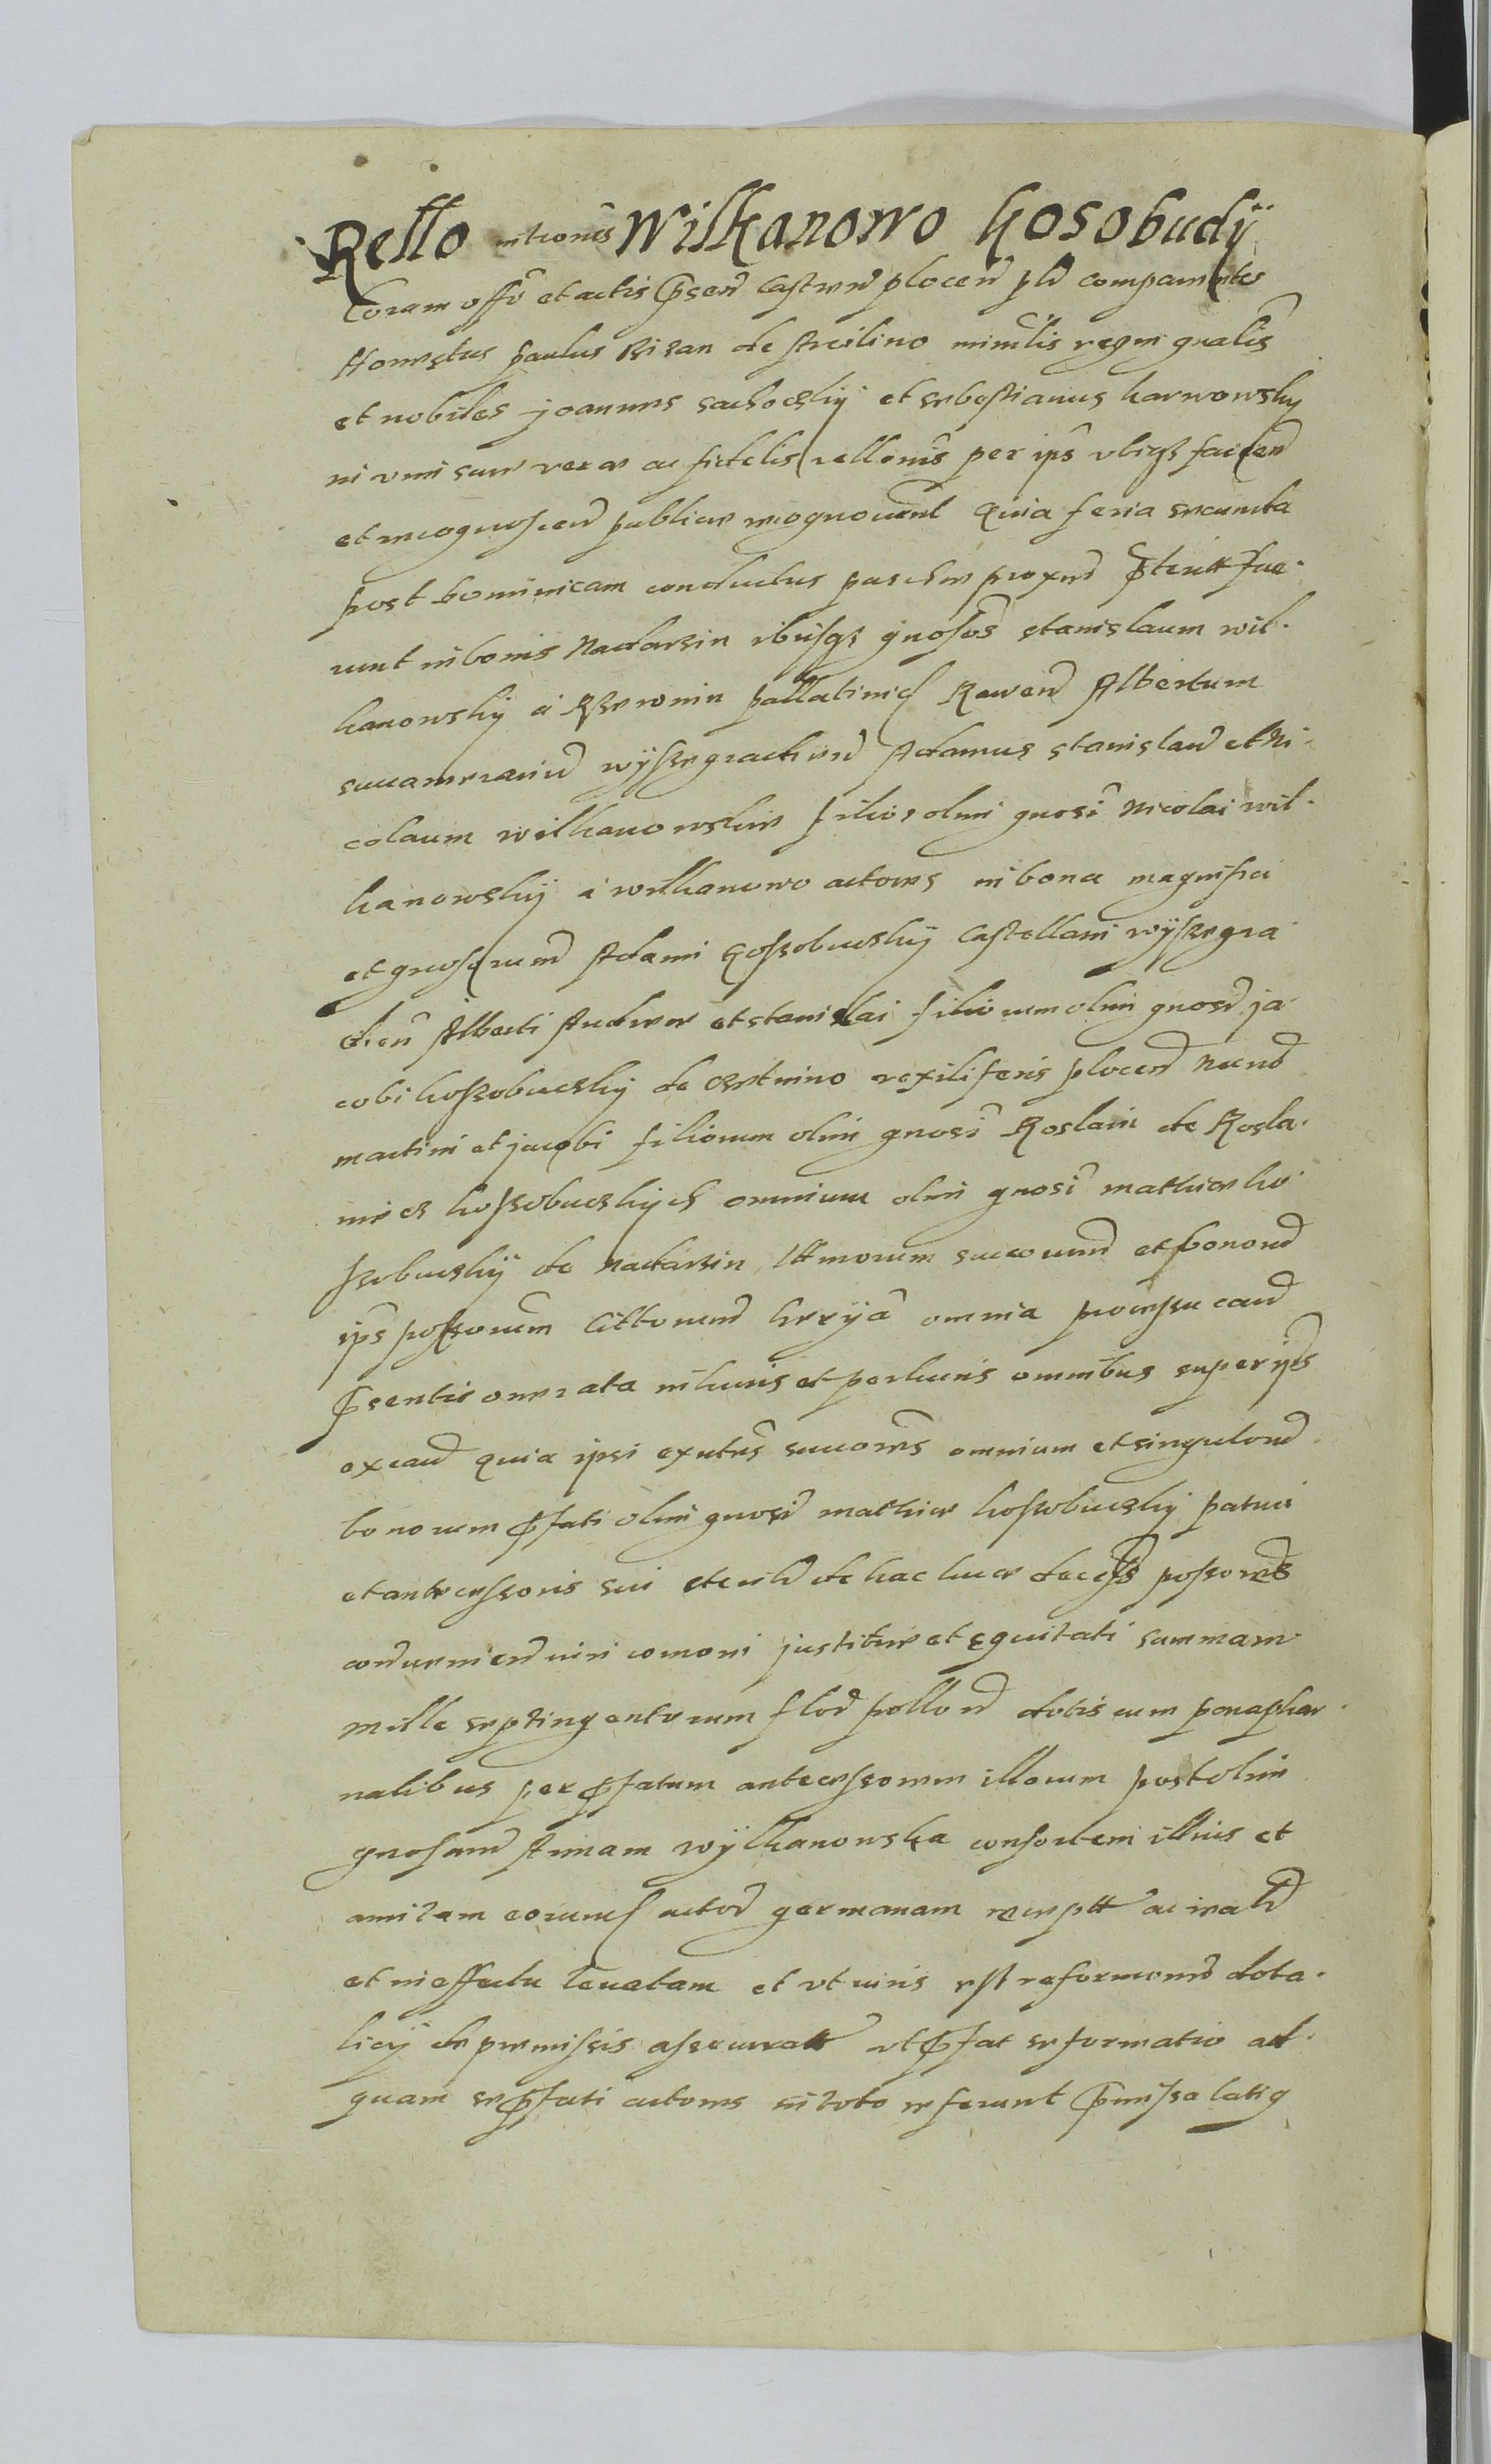 Rello intromis Wilkanowo Kosobudÿ
Coram offo et actis pnsen Castren plocen plr comparentes
Honestus paulus Rizan de Strcilino minrlis regni gnalis
et nobiles joannes sachoczkÿ et sebastianus karwowsky
in vim sue verae ac fidelis rellonis per ips vtigz faciend
et recognoscend publice recognouerunt Quia feria secunda
post Dominicam conductus paschae proxme pterit fue.
runt in bonis Nadarzin ibusqz gnosos stanislaum wil.
kanowskÿ a Rzewnin pallatinid Rawen Albertum
succamerariu wÿszegraden Adamus stanislau et Ni-
colaum wilkanowskie filios olim gnosi Nicolai wil.
kanowskÿ a wilkanowo actores in bona magnifici
et gnosorum Adami Gossobuckÿ Castellani wÿszegra
den Alberti Andreae et stanislai filiorum olim gnosi ja
cobi kossobuczkÿ de Czetnino vexiliferis plocen Necnon
martini et jacobi filiorum olim gnosi Roslani de Rosla.
nie cz kossobuczkÿch omnium olim gnosi mathiae ko
szobuczkÿ de Nadarzin lttmorum succorum et bonorum
ips possorum Cittorum hrryã omnia processu caus
psentis onerata in huius et per huius omnibus super ips
excaus quia ipsi exutes succores omnium et singulorum
bonorum pfati olim gnosi mathiae kossobuczkÿ patrui
et antecessoris sui sterilr de hac luce decess possores
condurmiend iuri comoni justitiae et equitati summam
mille septingentorum flor pollon dotis cum paraphar
nalibus per pfatum antecessorem illorum post olim
gnosam Annam wÿlkanowska consortem illius et
amitam eorund actor germanam receptt ac realr
et in effectu leuatam et vt iuris est reformonis dota.
licÿ de premissis assecuratt vt pfat reformatio ad
quam se pfati actores in toto referunt pmissa latiq